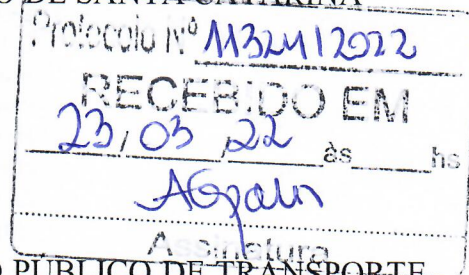 DE SANTA CATARINA
Protocolo Nº 11324/2022
RECEBIDO EM
23, 03, 22 às hs
Assinatura
PUBLICO DE TRANSPORTE